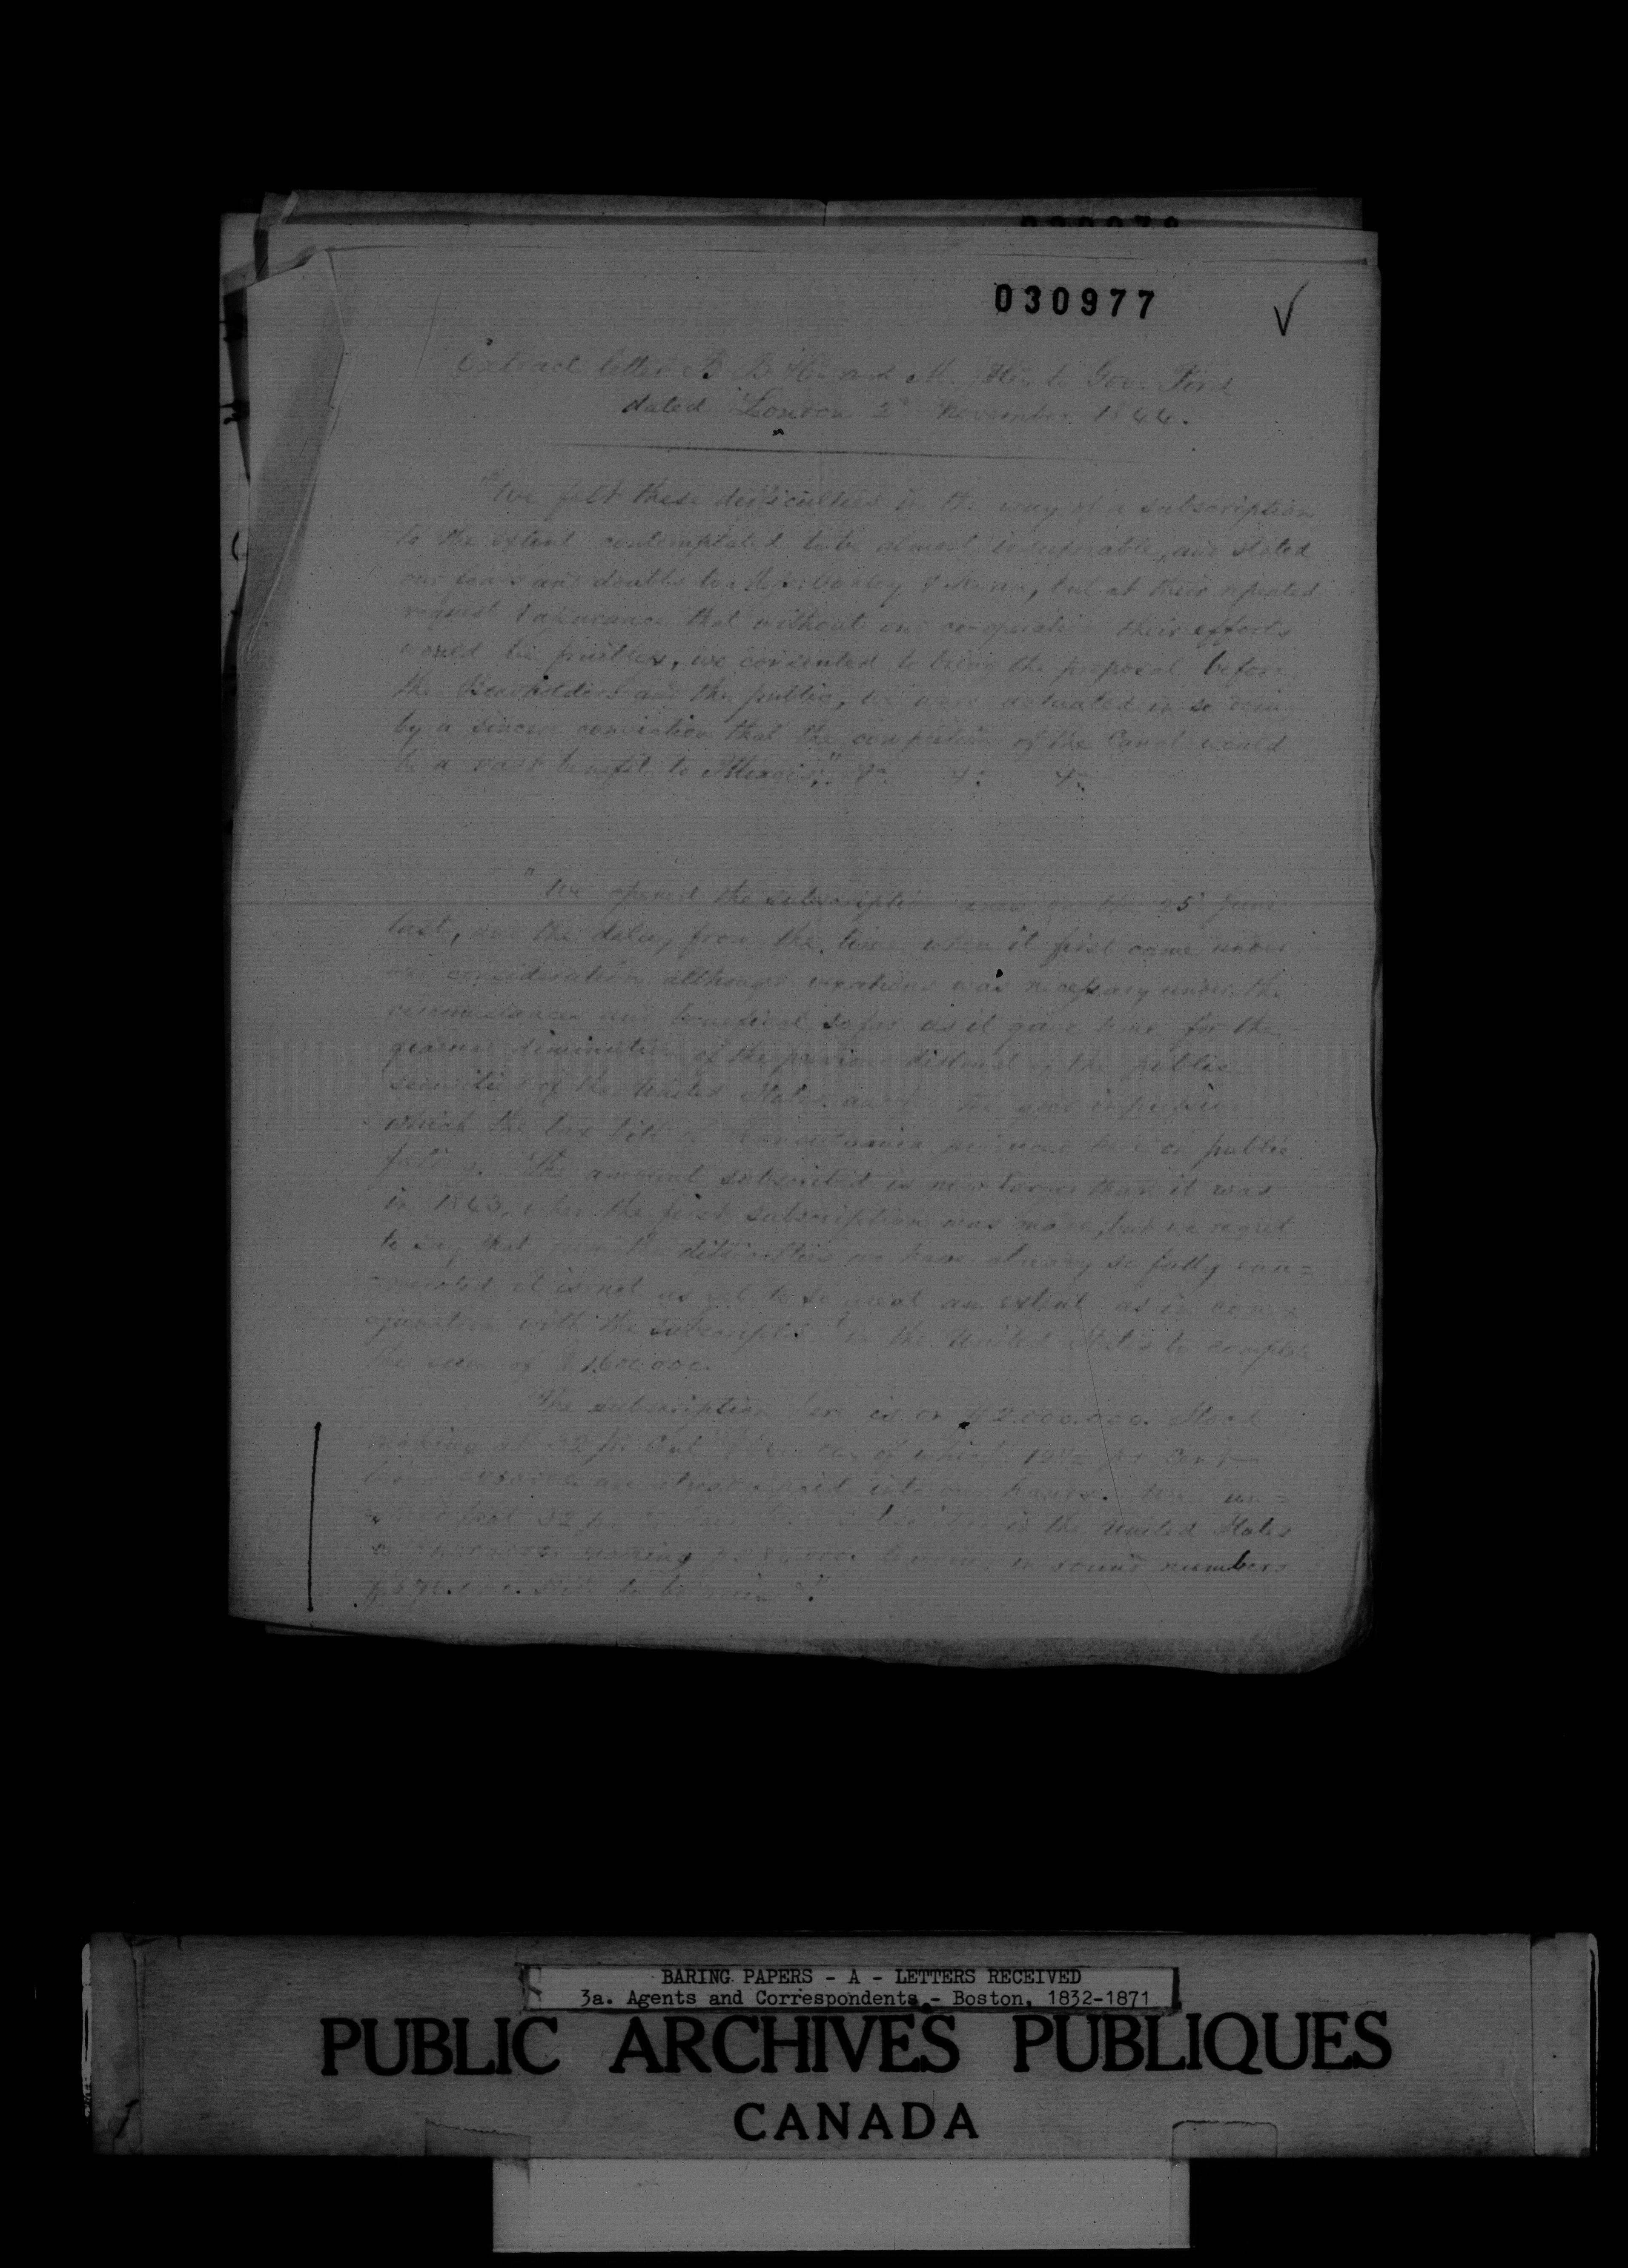 030977 ✓
Extract letter B B & Co. and M. & Co. to Gov. Ford
dated London 2d November 1844.
"We felt these difficulties in the way of a subscription
to the extent contemplated to be almost insuperable, and stated
our fears and doubts to Oakley &, but at their repeated
request & assurance that without our co-operation their efforts
would be fruitless, we consented to bring the proposal before
the Bondholders and the public, we were actuated in so doin
by a sincere conviction that the completion of the Canal would
be a vast benefit to Illinois;" &c. &c. &c.
"We opened the subscription anew on the 25 June
last, and the delay from the time when it first came under
our consideration although vexatious was necessary under the
circumstances and beneficial so far as it gave time for the
gradual diminution of the previous distrust of the public
securities of the United States and for the good impression
which the tax bill of Pennsylvania produced here on public
feeling. The amount subscribed is now larger than it was
in 1843, when the first subscription was made, but we regret
to say that from the difficulties we have already so fully enu=
=merated it is not as yet to so great an extent as in con=
=junction with the subscript in the United States to complete
the sum of $1.600.000.
The subscription here is on $2.000.000. Stock
making at 32 pr Cent of which 12½ pr Cent
are already paid into our hands. We un=
that 32 pr have been subscribed in the United States
making in round numbers
still to be raised."
BARING PAPERS - A - LETTERS RECEIVED
3a. Agents and Correspondents - Boston, 1832-1871
PUBLIC ARCHIVES PUBLIQUES
CANADA